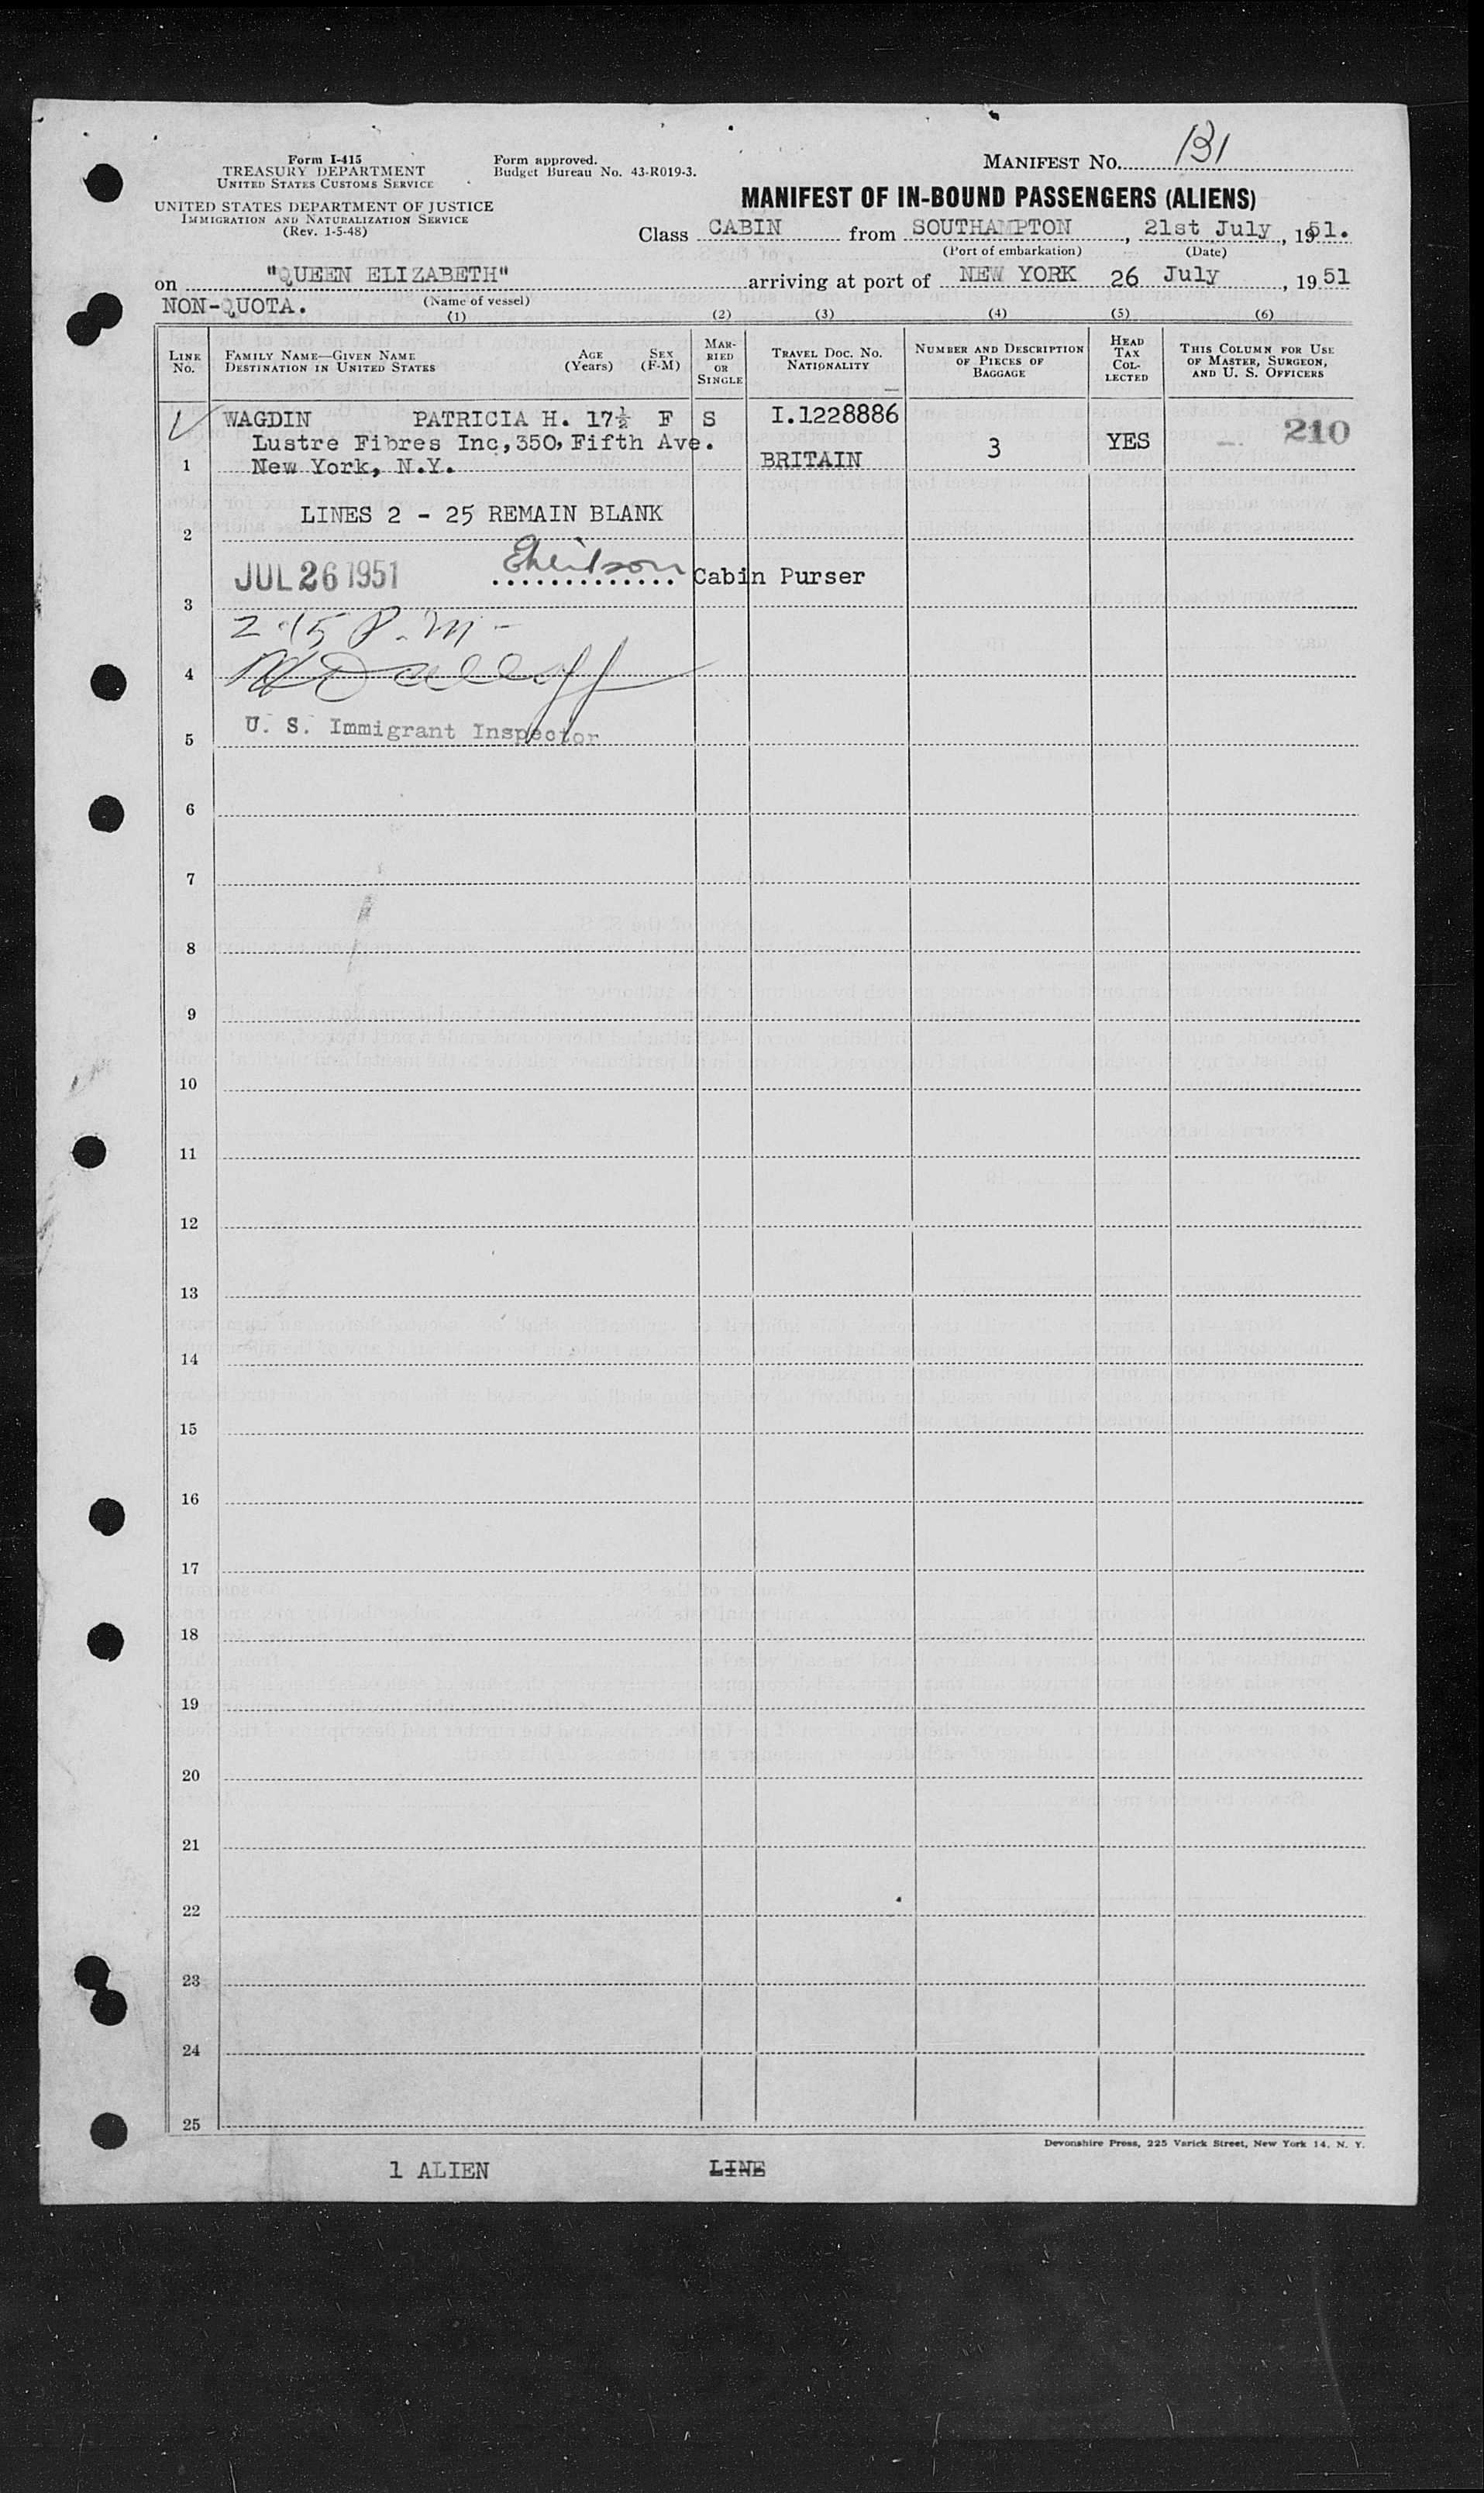 Form I-415
TREASURY DEPARTMENT
UNITED STATES CUSTOMS SERVICE
UNITED STATES DEPARTMENT OF JUSTICE
IMMIGRATION AND NATURALIZATION SERVICE
(Rev. 1-5-48)
Form approved.
Budget Bureau No. 43-R019-3.
MANIFEST NO. 131
MANIFEST OF IN-BOUND PASSENGERS (ALIENS)
Class CABIN from SOUTHAMPTON, 21st July, 1951.
(Port of embarkation) (Date)
on "QUEEN ELIZABETH" arriving at port of NEW YORK 26 July, 1951
NON-QUOTA. (Name of vessel)
(1) (2) (3) (4) (5) (6)
LINE NO.
FAMILY NAME—GIVEN NAME
DESTINATION IN UNITED STATES
AGE (Years)
SEX (F-M)
MARRIED OR SINGLE
TRAVEL DOC. NO.
NATIONALITY
NUMBER AND DESCRIPTION OF PIECES OF BAGGAGE
HEAD TAX COLLECTED
THIS COLUMN FOR USE OF MASTER, SURGEON, AND U. S. OFFICERS
WAGDIN PATRICIA H. 17½ F S I.1228886 210
Lustre Fibres Inc, 350, Fifth Ave. 3 YES
1 New York, N.Y. BRITAIN
LINES 2 - 25 REMAIN BLANK
2
JUL 26 1951 Cabin Purser
3
2.15 P.M.
4
U. S. Immigrant Inspector
5
6
7
8
9
10
11
12
13
14
15
16
17
18
19
20
21
22
23
24
25
Devonshire Press, 225 Varick Street, New York 14, N. Y.
1 ALIEN LINE